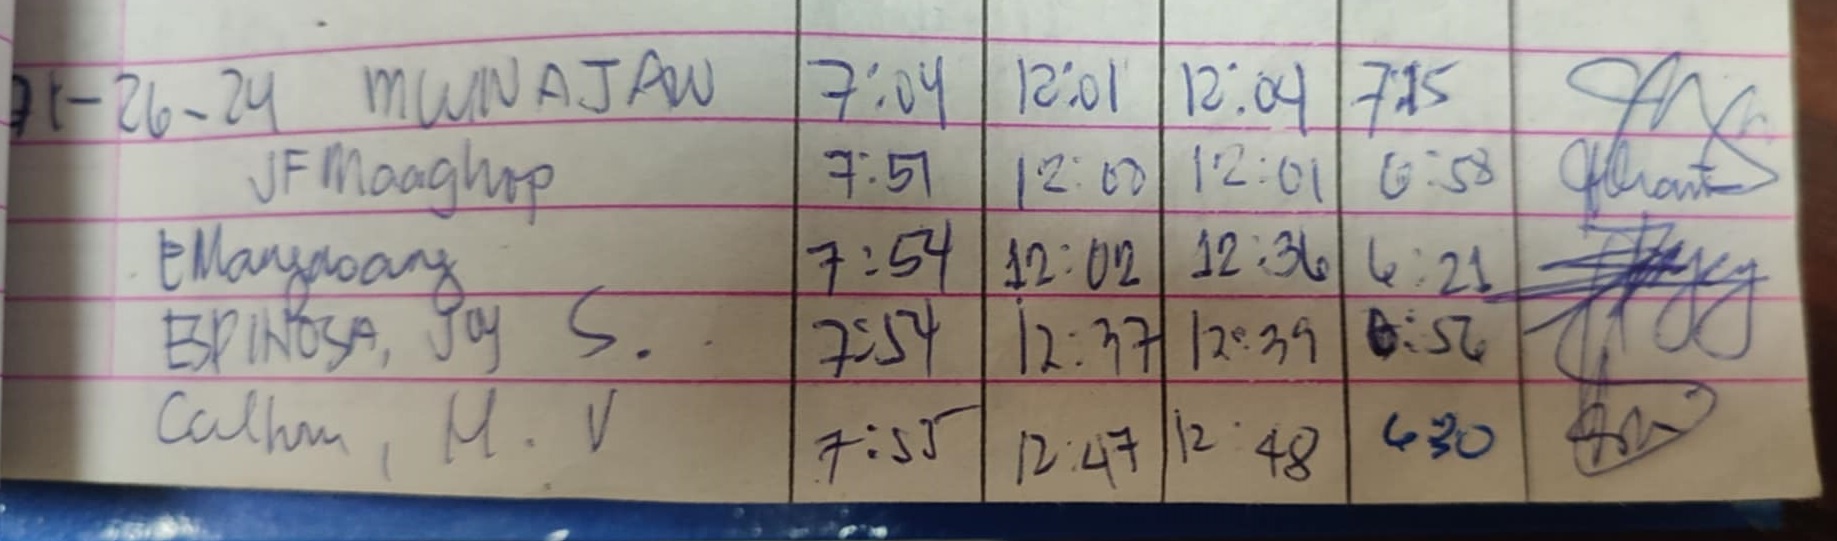 -26-24 MWNAJAW 7:04 12:01 12:04 7:15
JFMaaghop 7:51 12:00 12:01 6:58
EMangaoang 7:54 12:02 12:36 6:21
ESPINOSA, Joy S. 7:54 12:37 12:39 6:56
M. V 7:55 12:47 12:48 630